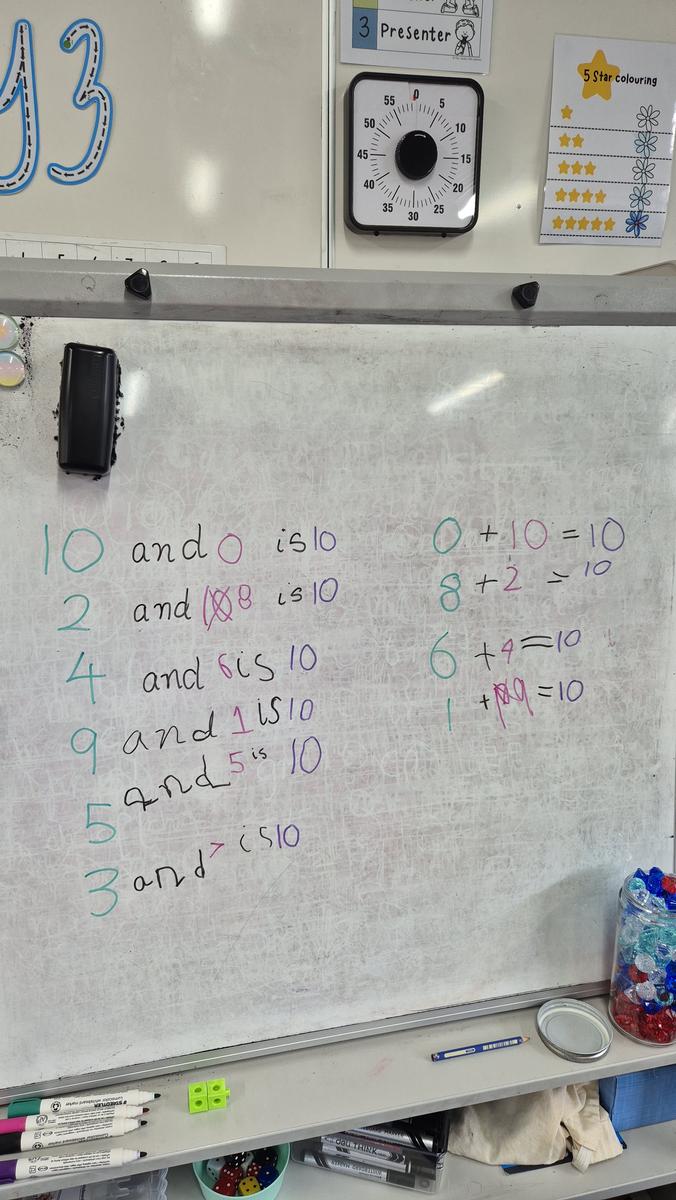 y3
3 Presenter
0
5
10
15
20
25
30
35
40
45
50
55
5 Star colouring
10 and 0 is 10
2 and 8 is 10
4 and 6 is 10
9 and 1 is 10
5 and 5 is 10
3 and 7 is 10
0 + 10 = 10
8 + 2 = 10
6 + 4 = 10
1 + 9 = 10
STAEDTLER
Lumocolor whiteboard marker